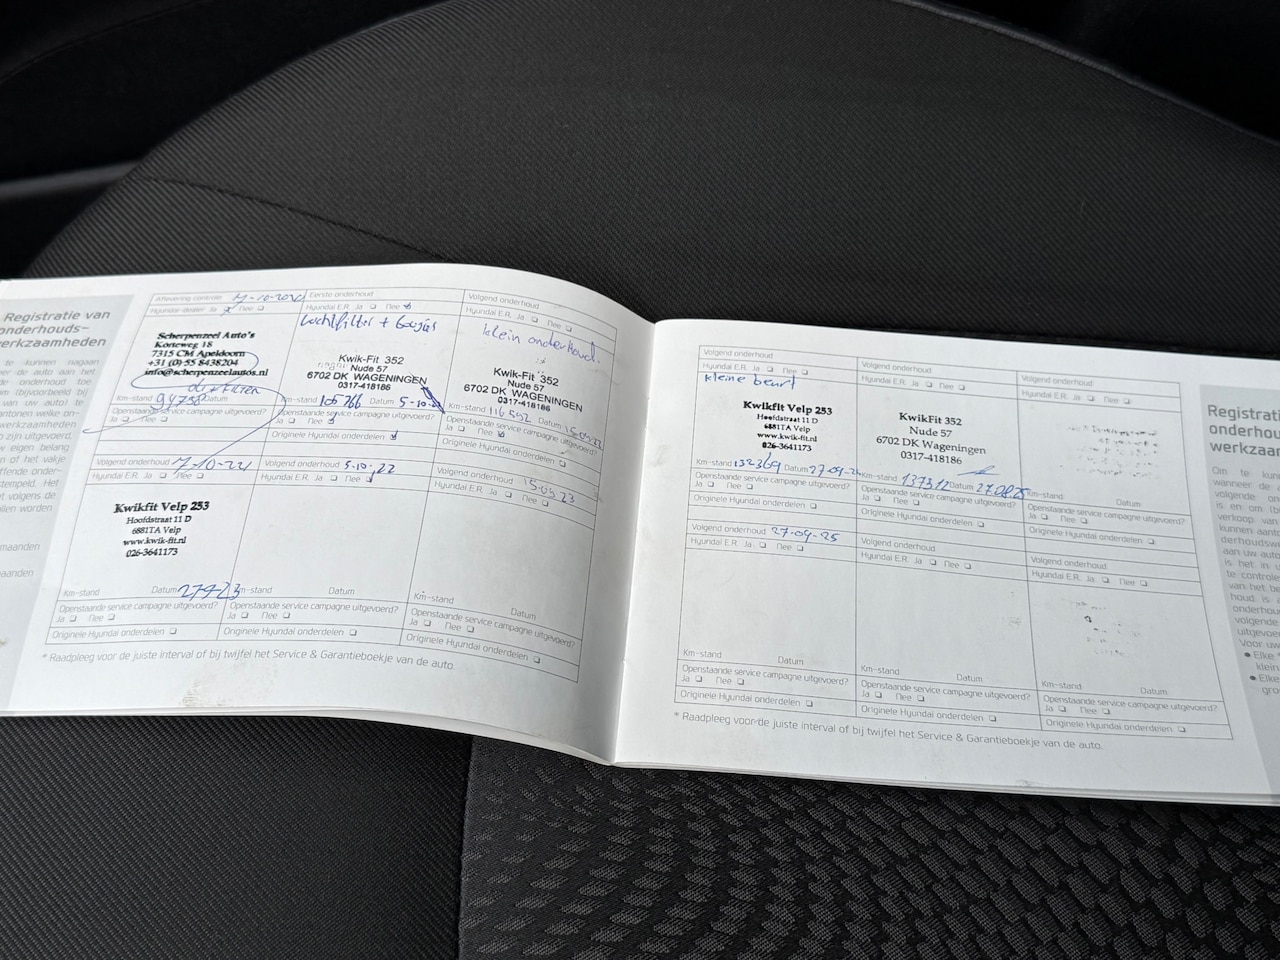 Registratie van
onderhouds-
werkzaamheden
te kunnen nagaan
er de auto aan het
de onderhoud toe
m (bijvoorbeeld bij
van uw auto) te
antonen welke on-
werkzaamheden
o zijn uitgevoerd,
w eigen belang
of het vakje
ffende onder-
stempeld. Het
t volgens de
llen worden
maanden
aanden
Aflevering controle
Hyundai-dealer Ja Nee
Scherpenzeel Auto's
Korteweg 18
7315 CM Apeldoorn
+31 (0) 55 8438204
info@scherpenzeelautos.nl
Km-stand 94758 Datum
Openstaande service campagne uitgevoerd?
Ja Nee
Volgend onderhoud
Hyundai E.R. Ja Nee
Eerste onderhoud
Hyundai E.R. Ja Nee
Luchtfilter + bougies
Kwik-Fit 352
Nude 57
6702 DK WAGENINGEN
0317-418186
Km-stand 105766 Datum 5-10-22
Openstaande service campagne uitgevoerd?
Ja Nee
Originele Hyundai onderdelen
Volgend onderhoud 5-10-22
Hyundai E.R. Ja Nee
Volgend onderhoud
Hyundai E.R. Ja Nee
klein onderhoud.
Kwik-Fit 352
Nude 57
6702 DK WAGENINGEN
0317-418186
Km-stand 116552 Datum
Openstaande service campagne uitgevoerd?
Ja Nee
Originele Hyundai onderdelen
Volgend onderhoud 15-05-23
Hyundai E.R. Ja Nee
Kwikfit Velp 253
Hoofdstraat 11 D
6881TA Velp
www.kwik-fit.nl
026-3641173
Km-stand Datum 27-9-23
Openstaande service campagne uitgevoerd?
Ja Nee
Originele Hyundai onderdelen
Km-stand Datum
Openstaande service campagne uitgevoerd?
Ja Nee
Originele Hyundai onderdelen
Km-stand Datum
Openstaande service campagne uitgevoerd?
Ja Nee
Originele Hyundai onderdelen
* Raadpleeg voor de juiste interval of bij twijfel het Service & Garantieboekje van de auto.
Volgend onderhoud
Hyundai E.R. Ja Nee
kleine beurt
Kwikfit Velp 253
Hoofdstraat 11 D
6881TA Velp
www.kwik-fit.nl
026-3641173
Km-stand 132369 Datum
Openstaande service campagne uitgevoerd?
Ja Nee
Originele Hyundai onderdelen
Volgend onderhoud 27-09-25
Hyundai E.R. Ja Nee
Volgend onderhoud
Hyundai E.R. Ja Nee
KwikFit 352
Nude 57
6702 DK Wageningen
0317-418186
Km-stand 137312 Datum 27.08.25
Openstaande service campagne uitgevoerd?
Ja Nee
Originele Hyundai onderdelen
Volgend onderhoud
Hyundai E.R. Ja Nee
Volgend onderhoud
Hyundai E.R. Ja Nee
Km-stand Datum
Openstaande service campagne uitgevoerd?
Ja Nee
Originele Hyundai onderdelen
Volgend onderhoud
Hyundai E.R. Ja Nee
Km-stand Datum
Openstaande service campagne uitgevoerd?
Ja Nee
Originele Hyundai onderdelen
Km-stand Datum
Openstaande service campagne uitgevoerd?
Ja Nee
Originele Hyundai onderdelen
Km-stand Datum
Openstaande service campagne uitgevoerd?
Ja Nee
Originele Hyundai onderdelen
* Raadpleeg voor de juiste interval of bij twijfel het Service & Garantieboekje van de auto.
Registrati
onderhou
werkzaam
Om te kun
wanneer de
volgende on
is en om (b
verkoop van
kunnen aanto
derhoudswe
aan uw auto
is het in u
te controle
van het be
houd is
onderhou
volgende
uitgevoe
Voor uw
• Elke
klein
• Elke
gro